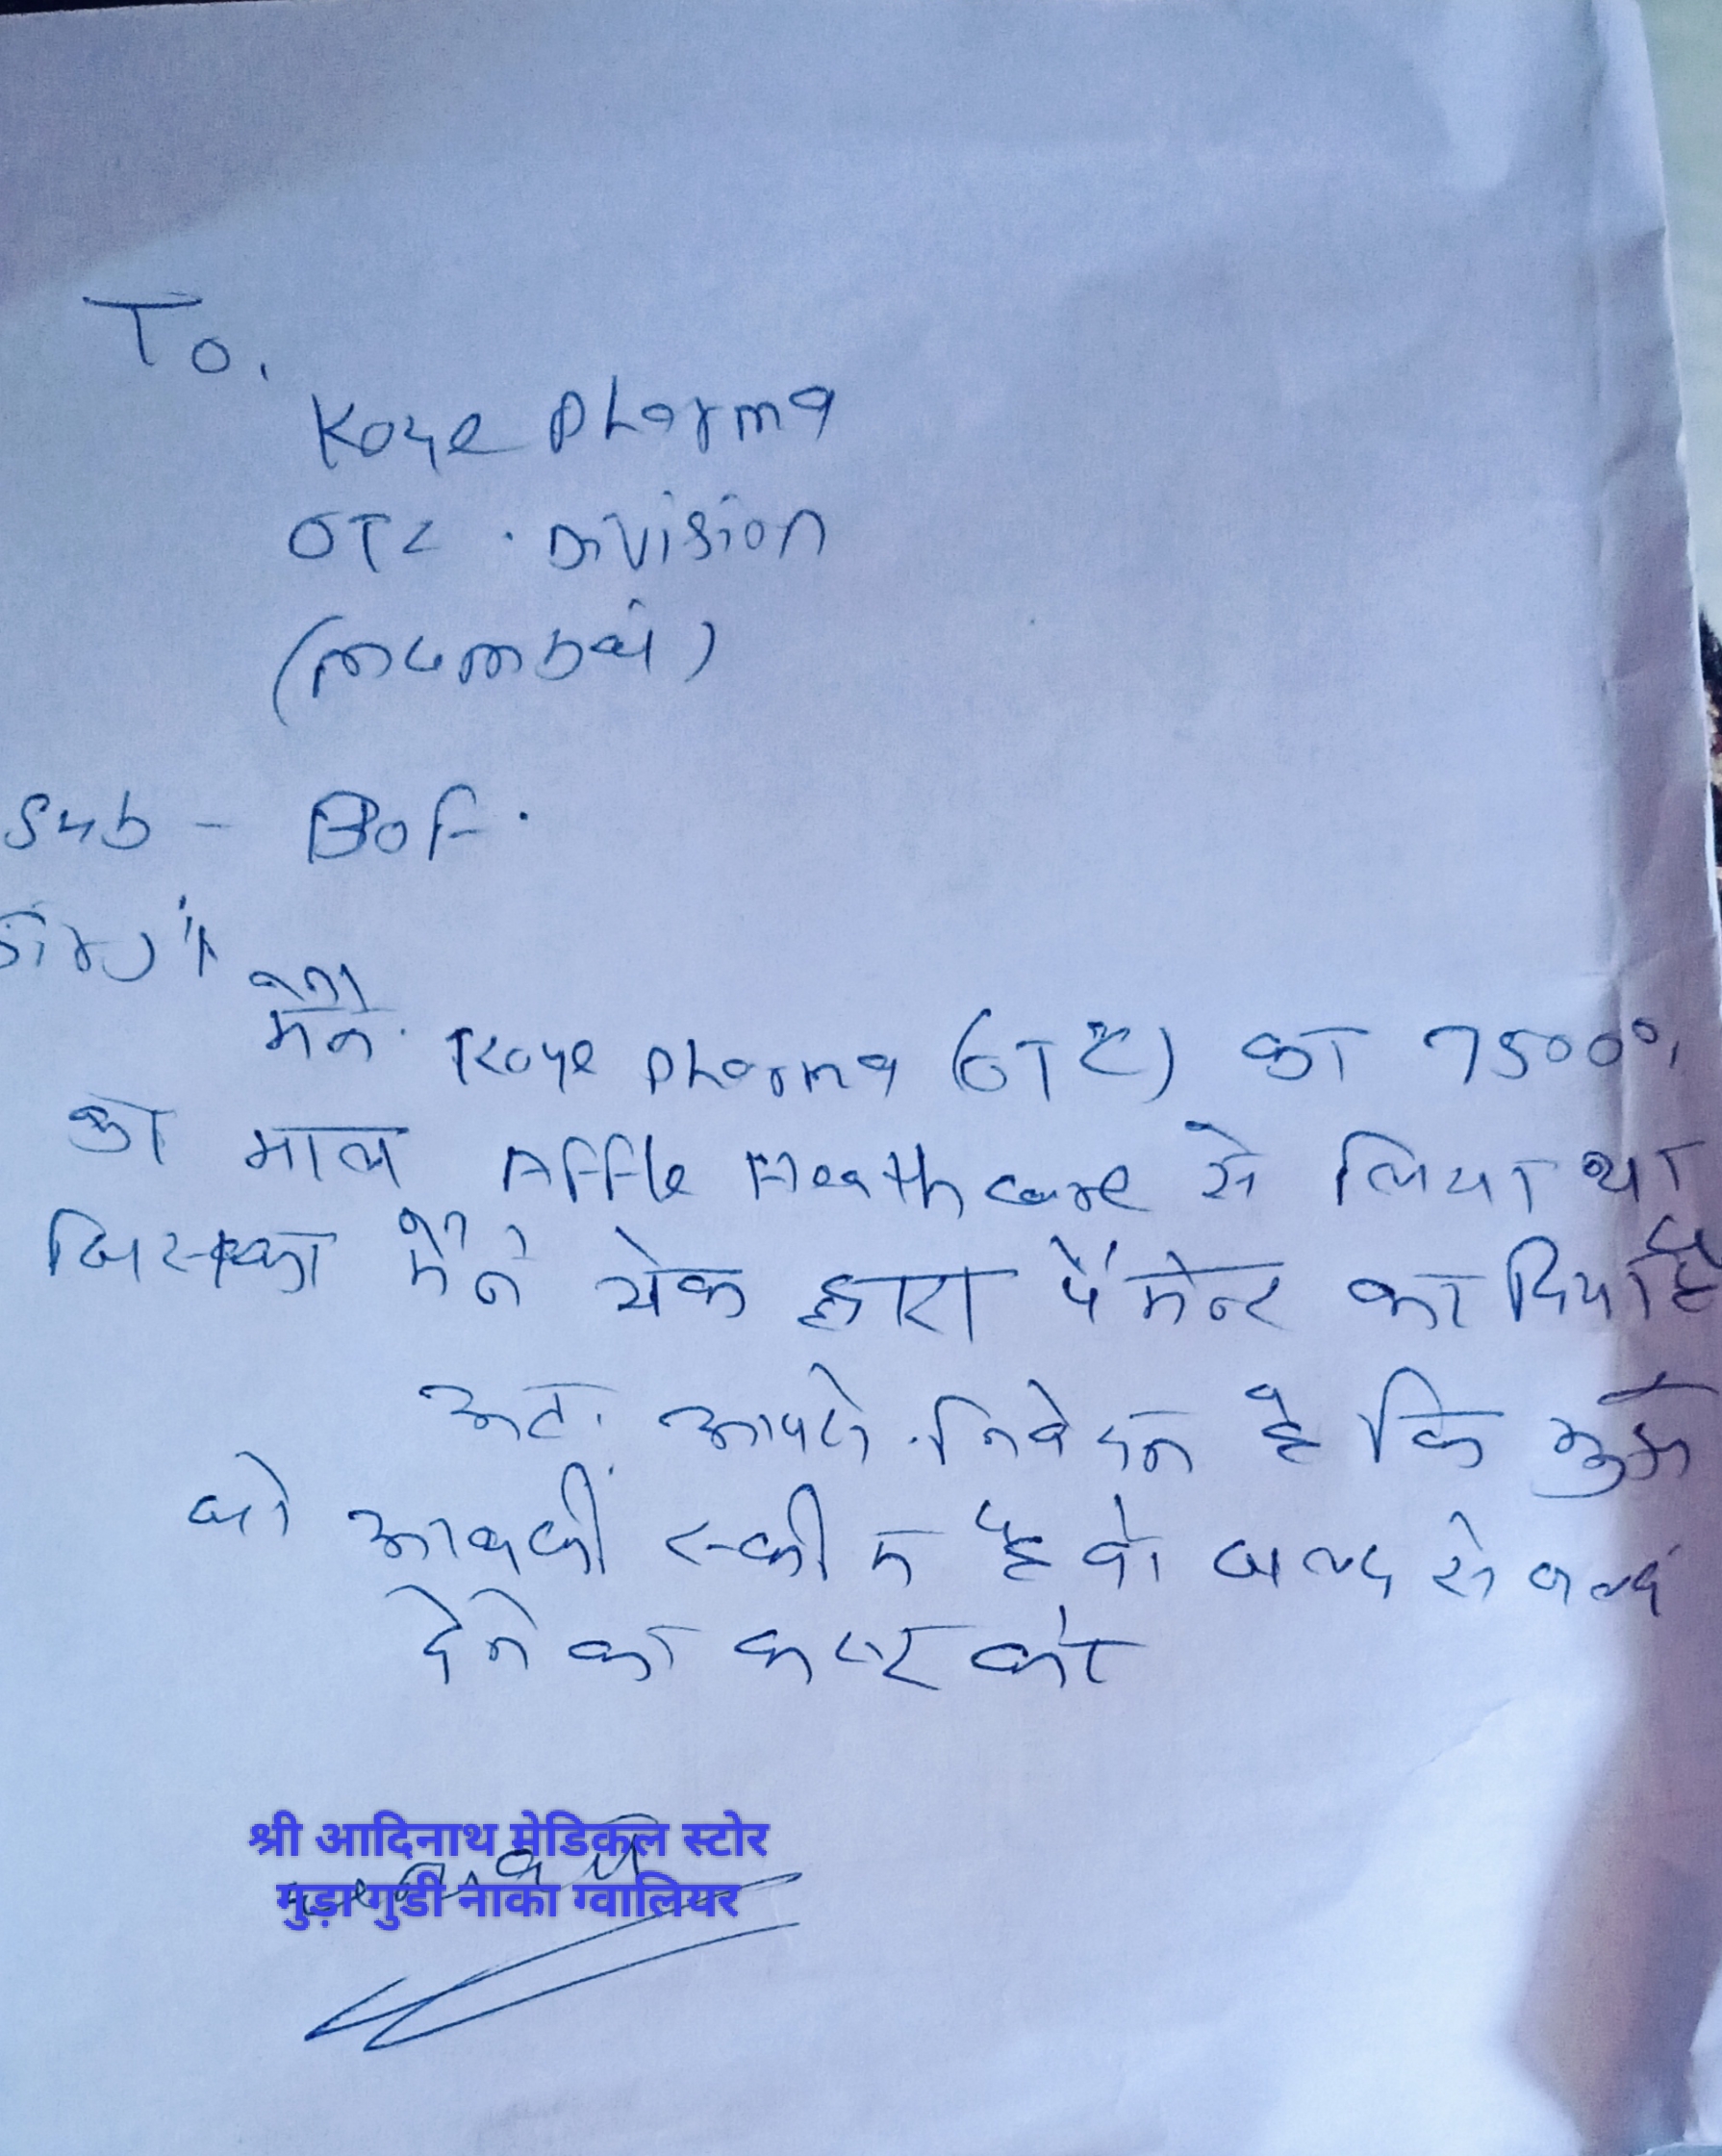 To,
Koye Pharma
OTC . Division
(mumbai)
Sub - BOF.
Sir,
मैंने Koye Pharma (OTC) का 75000/
का माल Affle Heathcare से लिया था
जिसका मैंने चेक द्वारा पैमेन्ट कर दिया है
अतः आपसे निवेदन है कि मुझे
जो आपकी स्कीम है वो जल्द से जल्द
देने का कष्ट करे
श्री आदिनाथ मेडिकल स्टोर
गुड़ा गुडी नाका ग्वालियर